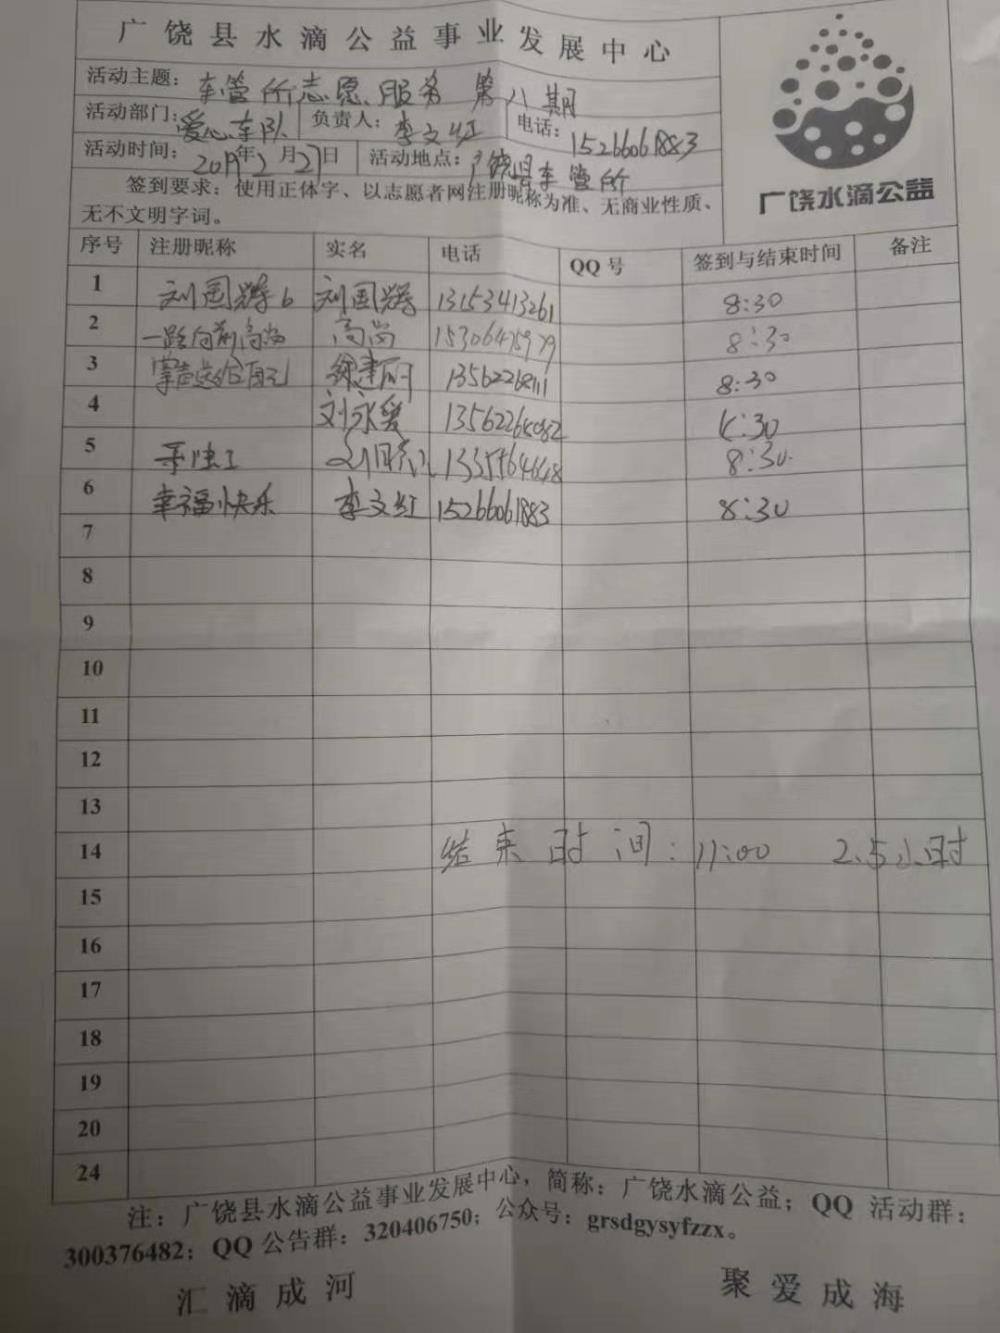 广饶县水滴公益事业发展中心
活动主题：车管所志愿服务 第八期
活动部门：爱心车队 负责人：李文红 电话：15266061883
活动时间：2019年2月27日 活动地点：广饶县车管所
签到要求：使用正体字、以志愿者网注册昵称为准、无商业性质、
无不文明字词。
广饶水滴公益
序号 注册昵称 实名 电话 QQ号 签到与结束时间 备注
1 刘国辉6 刘国辉 13153413261 8:30
2 一路向前高尚 高尚 15306475979 8:30
3 8:30
4 刘永爱 8:30
5 8:30
6 幸福快乐 李文红 15266061883 8:30
7
8
9
10
11
12
13
14 结束时间：11:00 2.5小时
15
16
17
18
19
20
24
注：广饶县水滴公益事业发展中心，简称：广饶水滴公益；QQ 活动群：
300376482；QQ 公告群：320406750；公众号：grsdgysyfzzx。
汇滴成河 聚爱成海